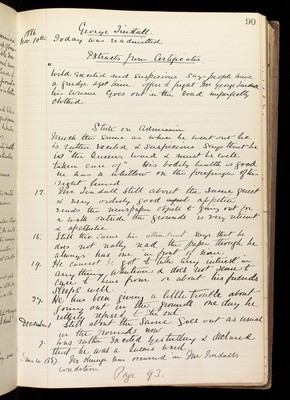 90
1886
Novr 10th George Tindall.
Today was readmitted
Extracts from Certificates
"Wild Excited and Suspicious Says people have
a grudge agst him offers to fight Mr George Tindall
his cousin Goes out in the road imperfectly
clothed
State on Admission
Much the same as when he went out he
is rather Excited & Suspicious Says that he
is the Queens ward & must be well
taken care of" His bodily health is good
He has a whitlow on the forefinger of his
right hand
12. Mr Tindall still about the same quiet
& very orderly good appetite
reads the newspaper objects to going out for
a walk outside the grounds is very silent
& apathetic
15. Still the same his attendant says that he
does not really read the paper though he
always has one in front of him
19. He cannot be got to take any interest in
anything whatever & does not seem to
care to hear from or about his friends
sleeps well
27. He has been giving a little trouble about
going out in the grounds one day he
utterly refused to go out
December 1 Still about the same Goes out as usual
in the grounds now
7. was rather Excited Yesterday & declared
that he was a Queens ward
Jan 4 1887 No change has occurred in Mr Tindalls
condition
Page 93.